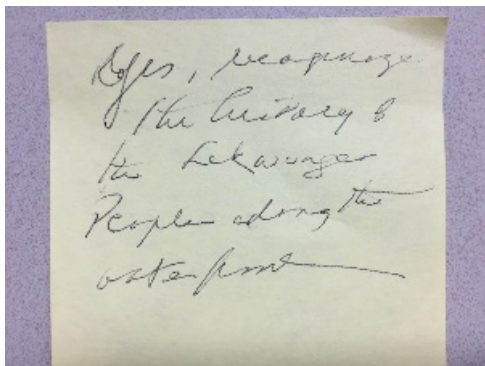 Yes, recognize
the history of
the Lekwungen
People along the
waterfront